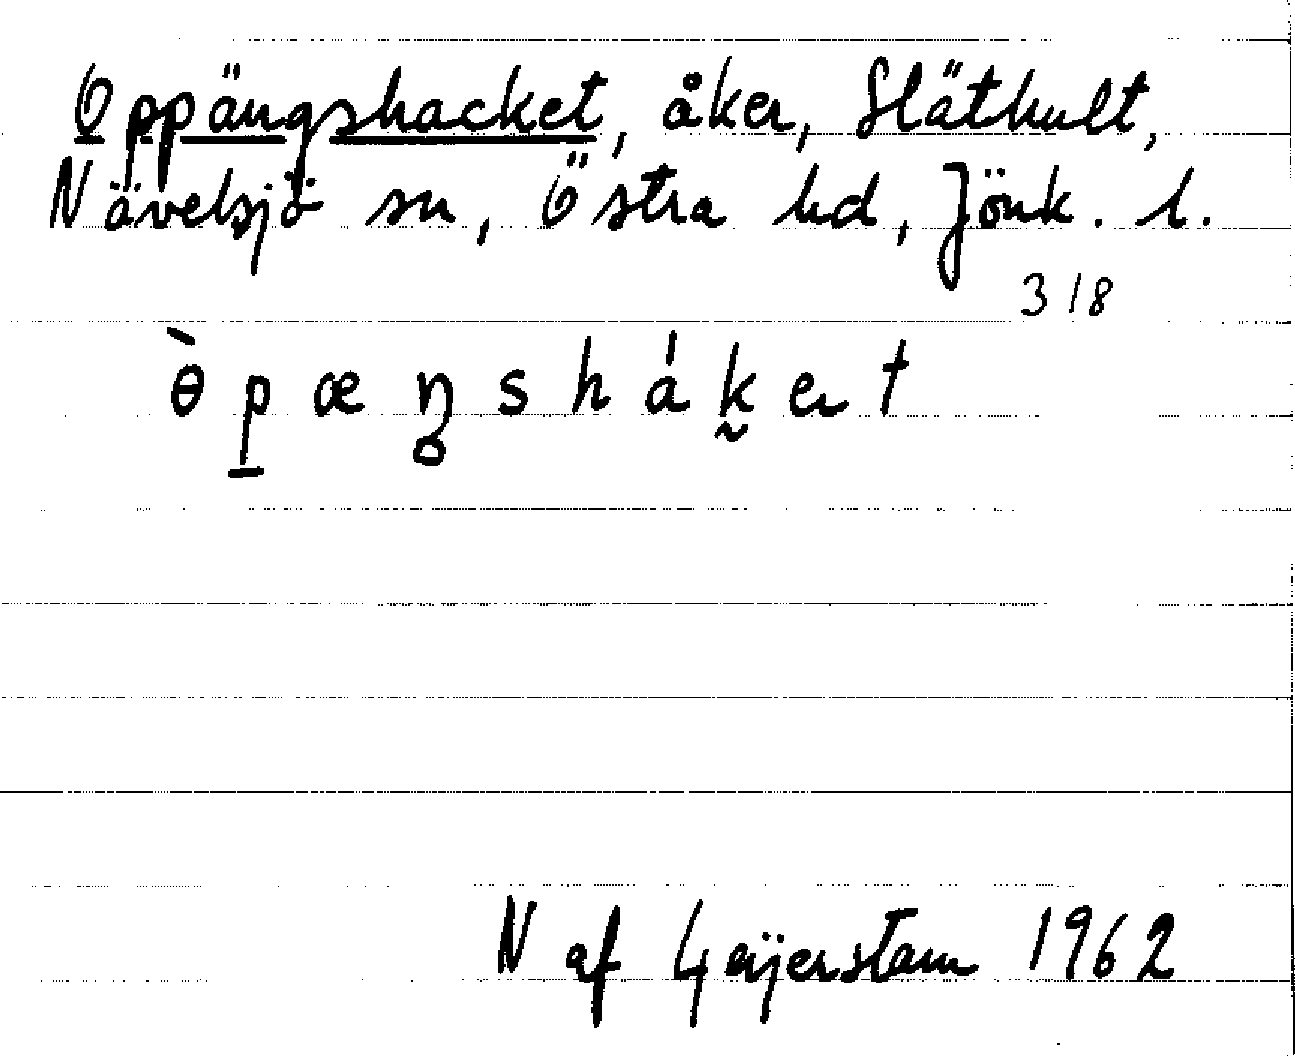 Oppängshacket, åker, Släthult,
Nävelsjö sn, Östra hd, Jönk. l.
318
ὸp̲æŋshák̰ert
N af Geijerstam 1962